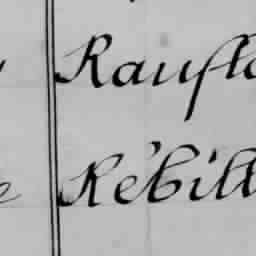 Raufla
Rébill